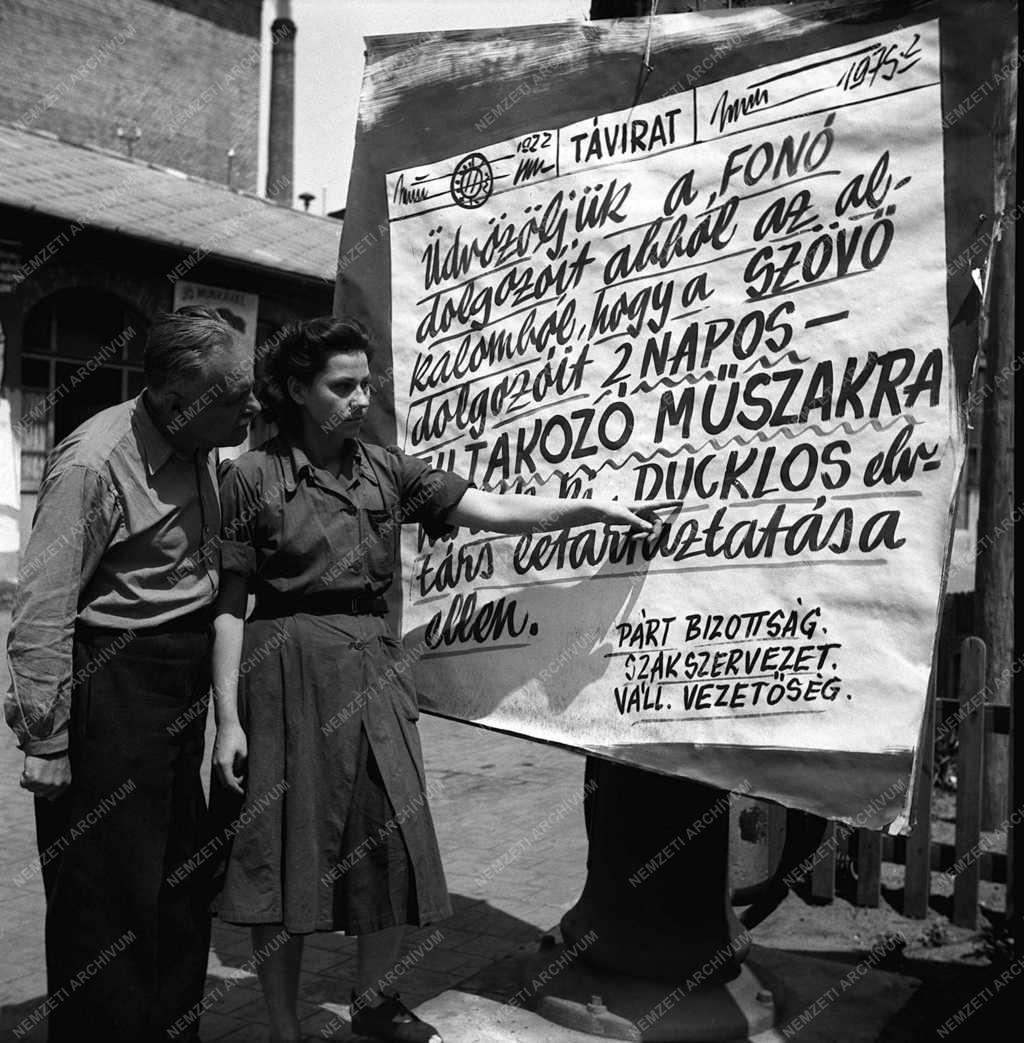 JÓ MUNKÁVAL
1922
TÁVIRAT
1975-2
Üdvözöljük a FONÓ
dolgozóit abból az al-
kalomból, hogy a SZÖVŐ
dolgozóit 2 NAPOS -
TILTAKOZÓ MŰSZAKRA
DUCKLOS elv-
társ letartóztatása
ellen.
PÁRT BIZOTTSÁG.
SZAKSZERVEZET.
VÁLL. VEZETŐSÉG.
NEMZETI ARCHÍVUM